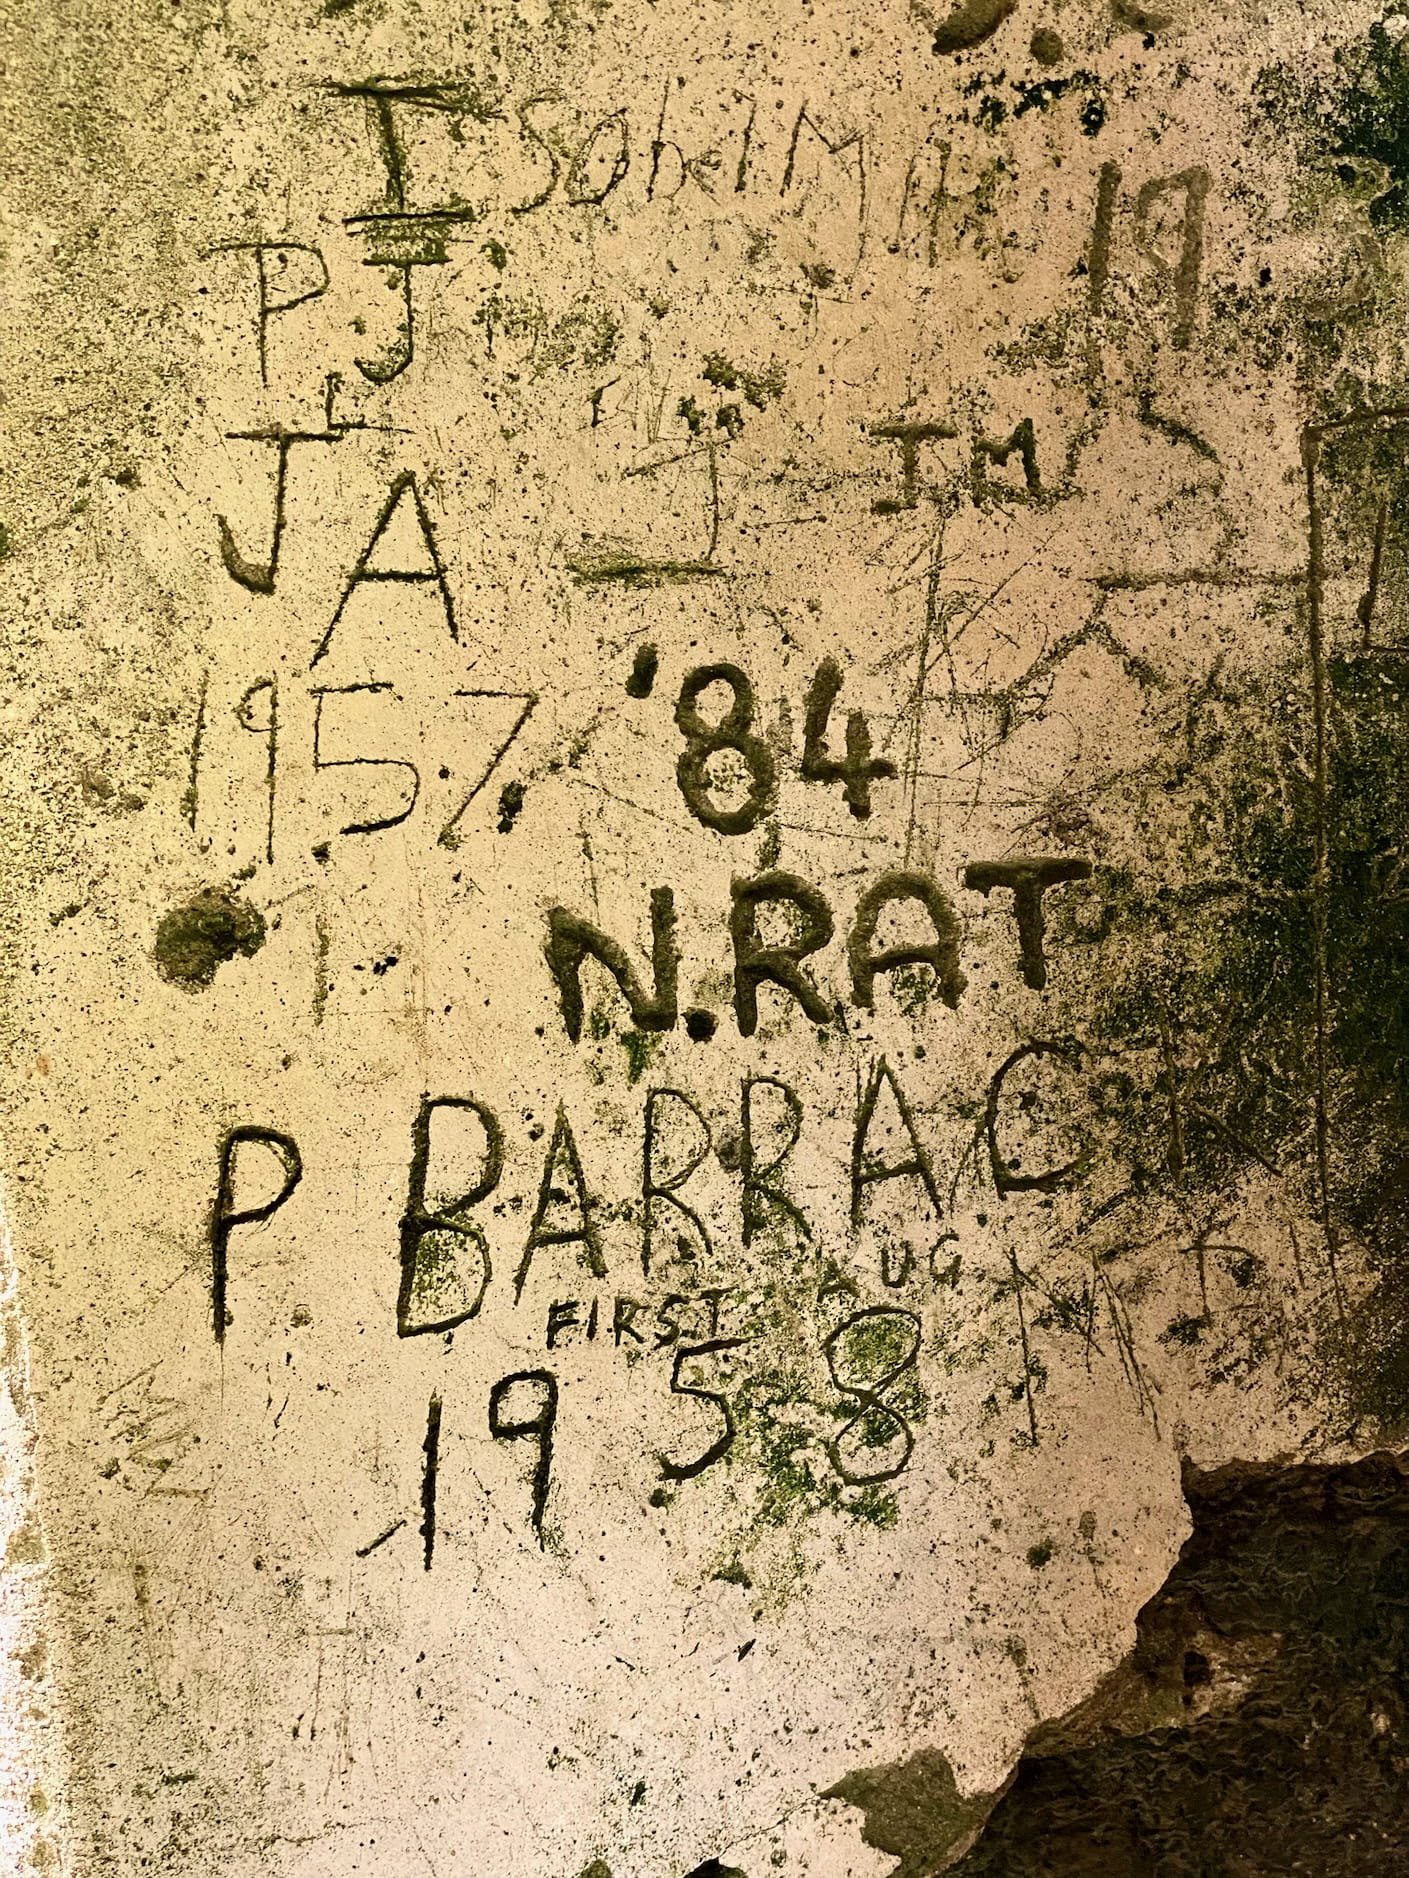 I Sobel M
19
P J
L
I M
J A
1957
'84
N. RAT
P. BARRAC
FIRST AUG
1958